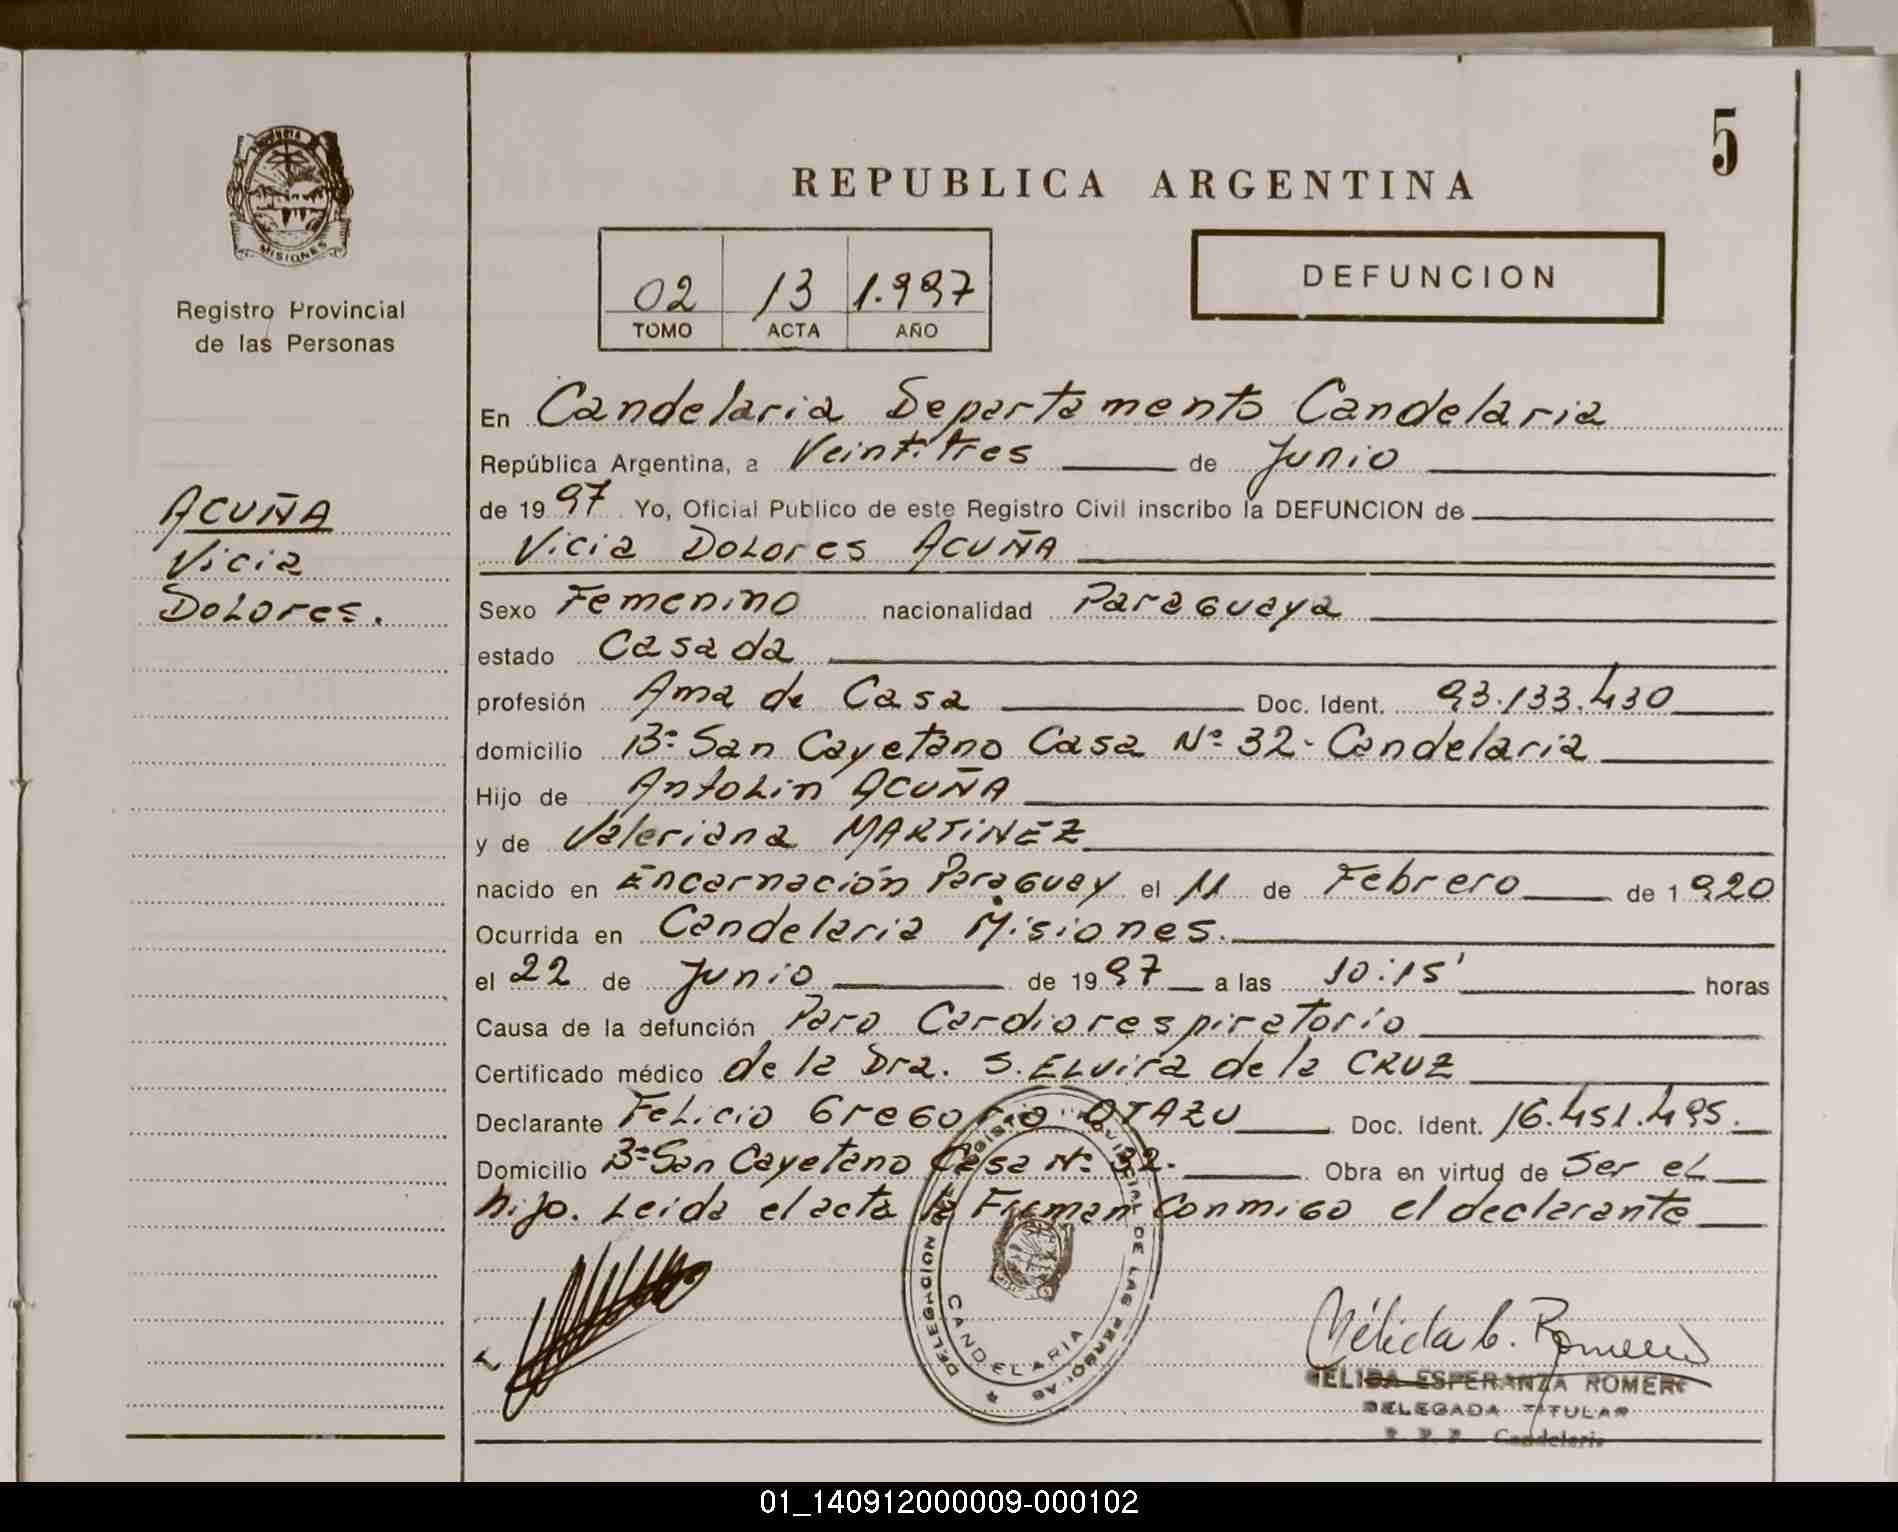 5
MISIONES
Registro Provincial
de las Personas
REPUBLICA ARGENTINA
02 13 1.997
TOMO ACTA AÑO
DEFUNCION
ACUÑA
Vicia
Dolores.
En Candelaria Departamento Candelaria
República Argentina, a Veintitres de Junio
de 1997 Yo, Oficial Publico de este Registro Civil inscribo la DEFUNCION de
Vicia Dolores ACUÑA
Sexo Femenino nacionalidad Paraguaya
estado Casada
profesión Ama de Casa Doc. Ident. 93.133.430
domicilio Bº San Cayetano Casa Nº 32- Candelaria
Hijo de Antolin ACUÑA
y de Valeriana MARTINEZ
nacido en Encarnación Paraguay el 11 de Febrero de 1920
Ocurrida en Candelaria Misiones.
el 22 de Junio de 1997 a las 10:15' horas
Causa de la defunción Paro Cardiorespiratorio
Certificado médico de la Dra. S. Elvira de la CRUZ
Declarante Felicio Gregorio OTAZU Doc. Ident. 16.451.495.
Domicilio Bº San Cayetano Casa Nº 32. Obra en virtud de Ser el
hijo. Leida el acta la Firman Conmigo el declarante
DELEGACION REGISTRO PROVINCIAL DE LAS PERSONAS
CANDELARIA
Nélida E. Romero
NELIDA ESPERANZA ROMERO
DELEGADA TITULAR
R. P. P. Candelaria
01_140912000009-000102